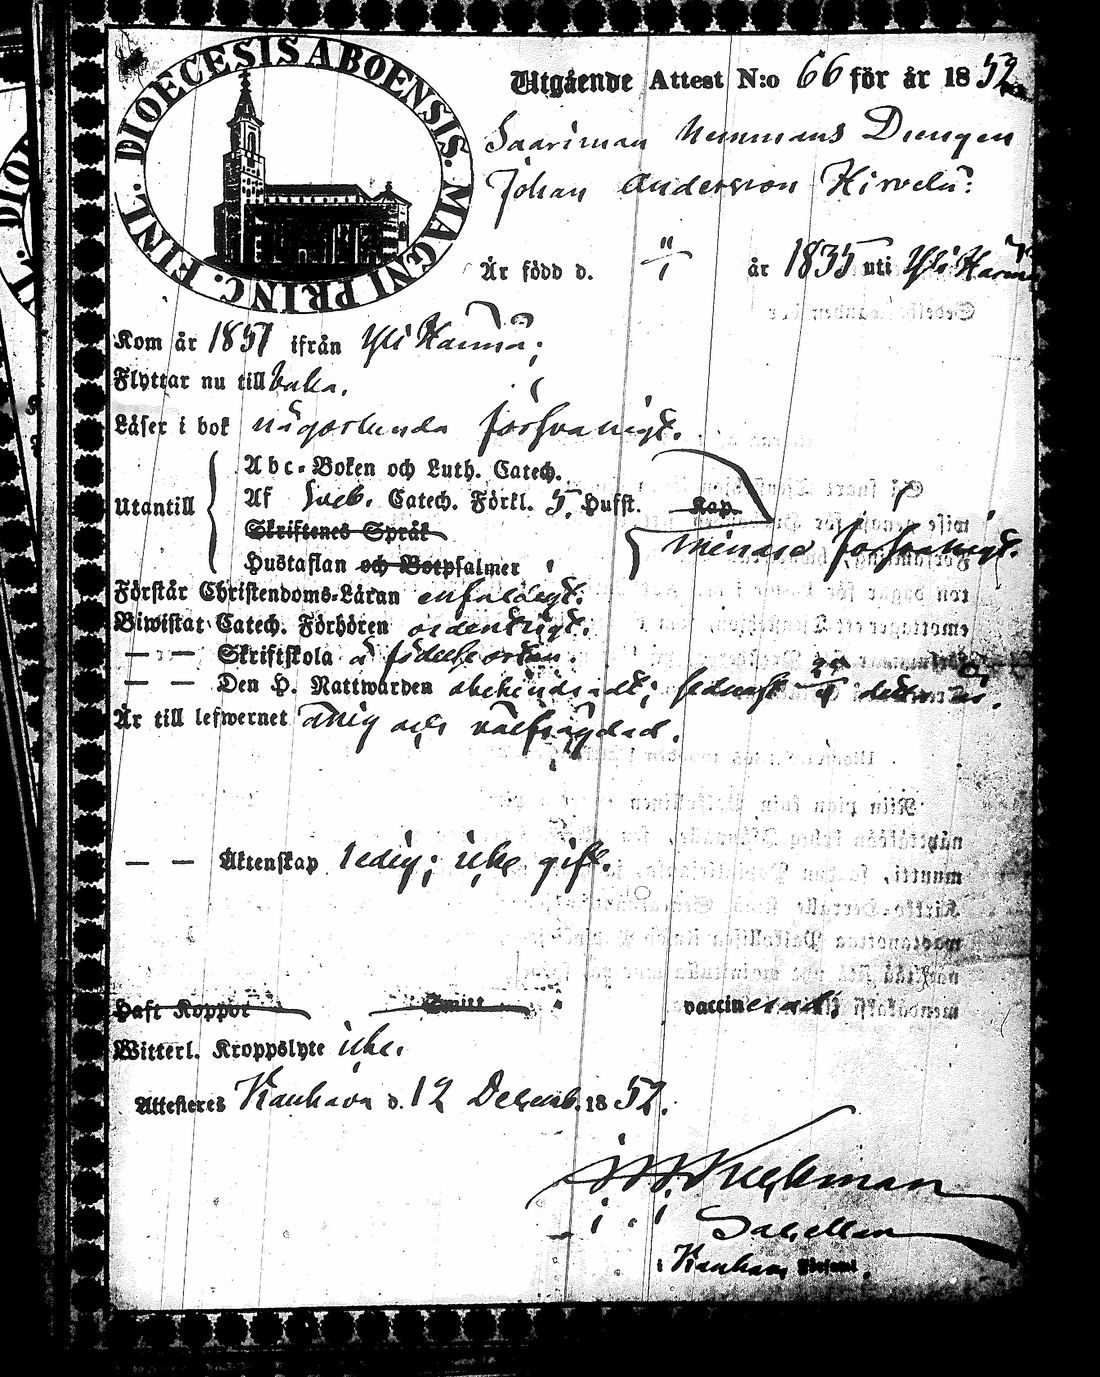 DIOECESIS ABOENSIS. MAGNI PRINC. FINL.
Utgående Attest N:o 66 för år 1852
Saariman Hemmans Drengen
Johan Andersson Hirvelä:
Är född d. år 1835 uti Yli Härmä
Kom år 1851 ifrån Yli Härmä;
Flyttar nu till baka.
Läser i bok någorlunda försvarligt.
Utantill
Abc-Boken och Luth. Catech.
Af Sveb. Catech. Förkl. 5. Hufst. Kap
Skriftenes Språk
Hustaflan och Botpsalmer
mindre försvarligt.
Förstår Christendoms-Läran enfaldigt.
Biwistat Catech. Förhören ordentligt.
— — Skriftskola å födelseorten.
— — Den H. Nattwarden obehindradt; sednast
Är till lefwernet ärlig och välfrägdad.
— — Äktenskap ledig; icke gift.
Haft Koppor Smitt vaccinerad;
Witterl. Kroppslyte icke.
Attesteres Kauhava d. 12 Decemb. 1852.
Sacellan
i Kauhava